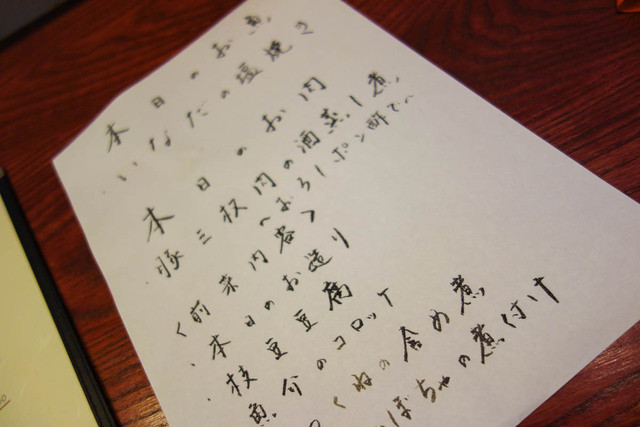 本日のお魚
・いなだの塩焼き
本日のお肉
・豚三枚肉の酒蒸し煮
〜おろしポン酢で〜
〈前菜内容〉
・本日のお造り
・枝豆豆腐
・魚介のコロッケ
くねの含め煮
ぼちゃの煮付け